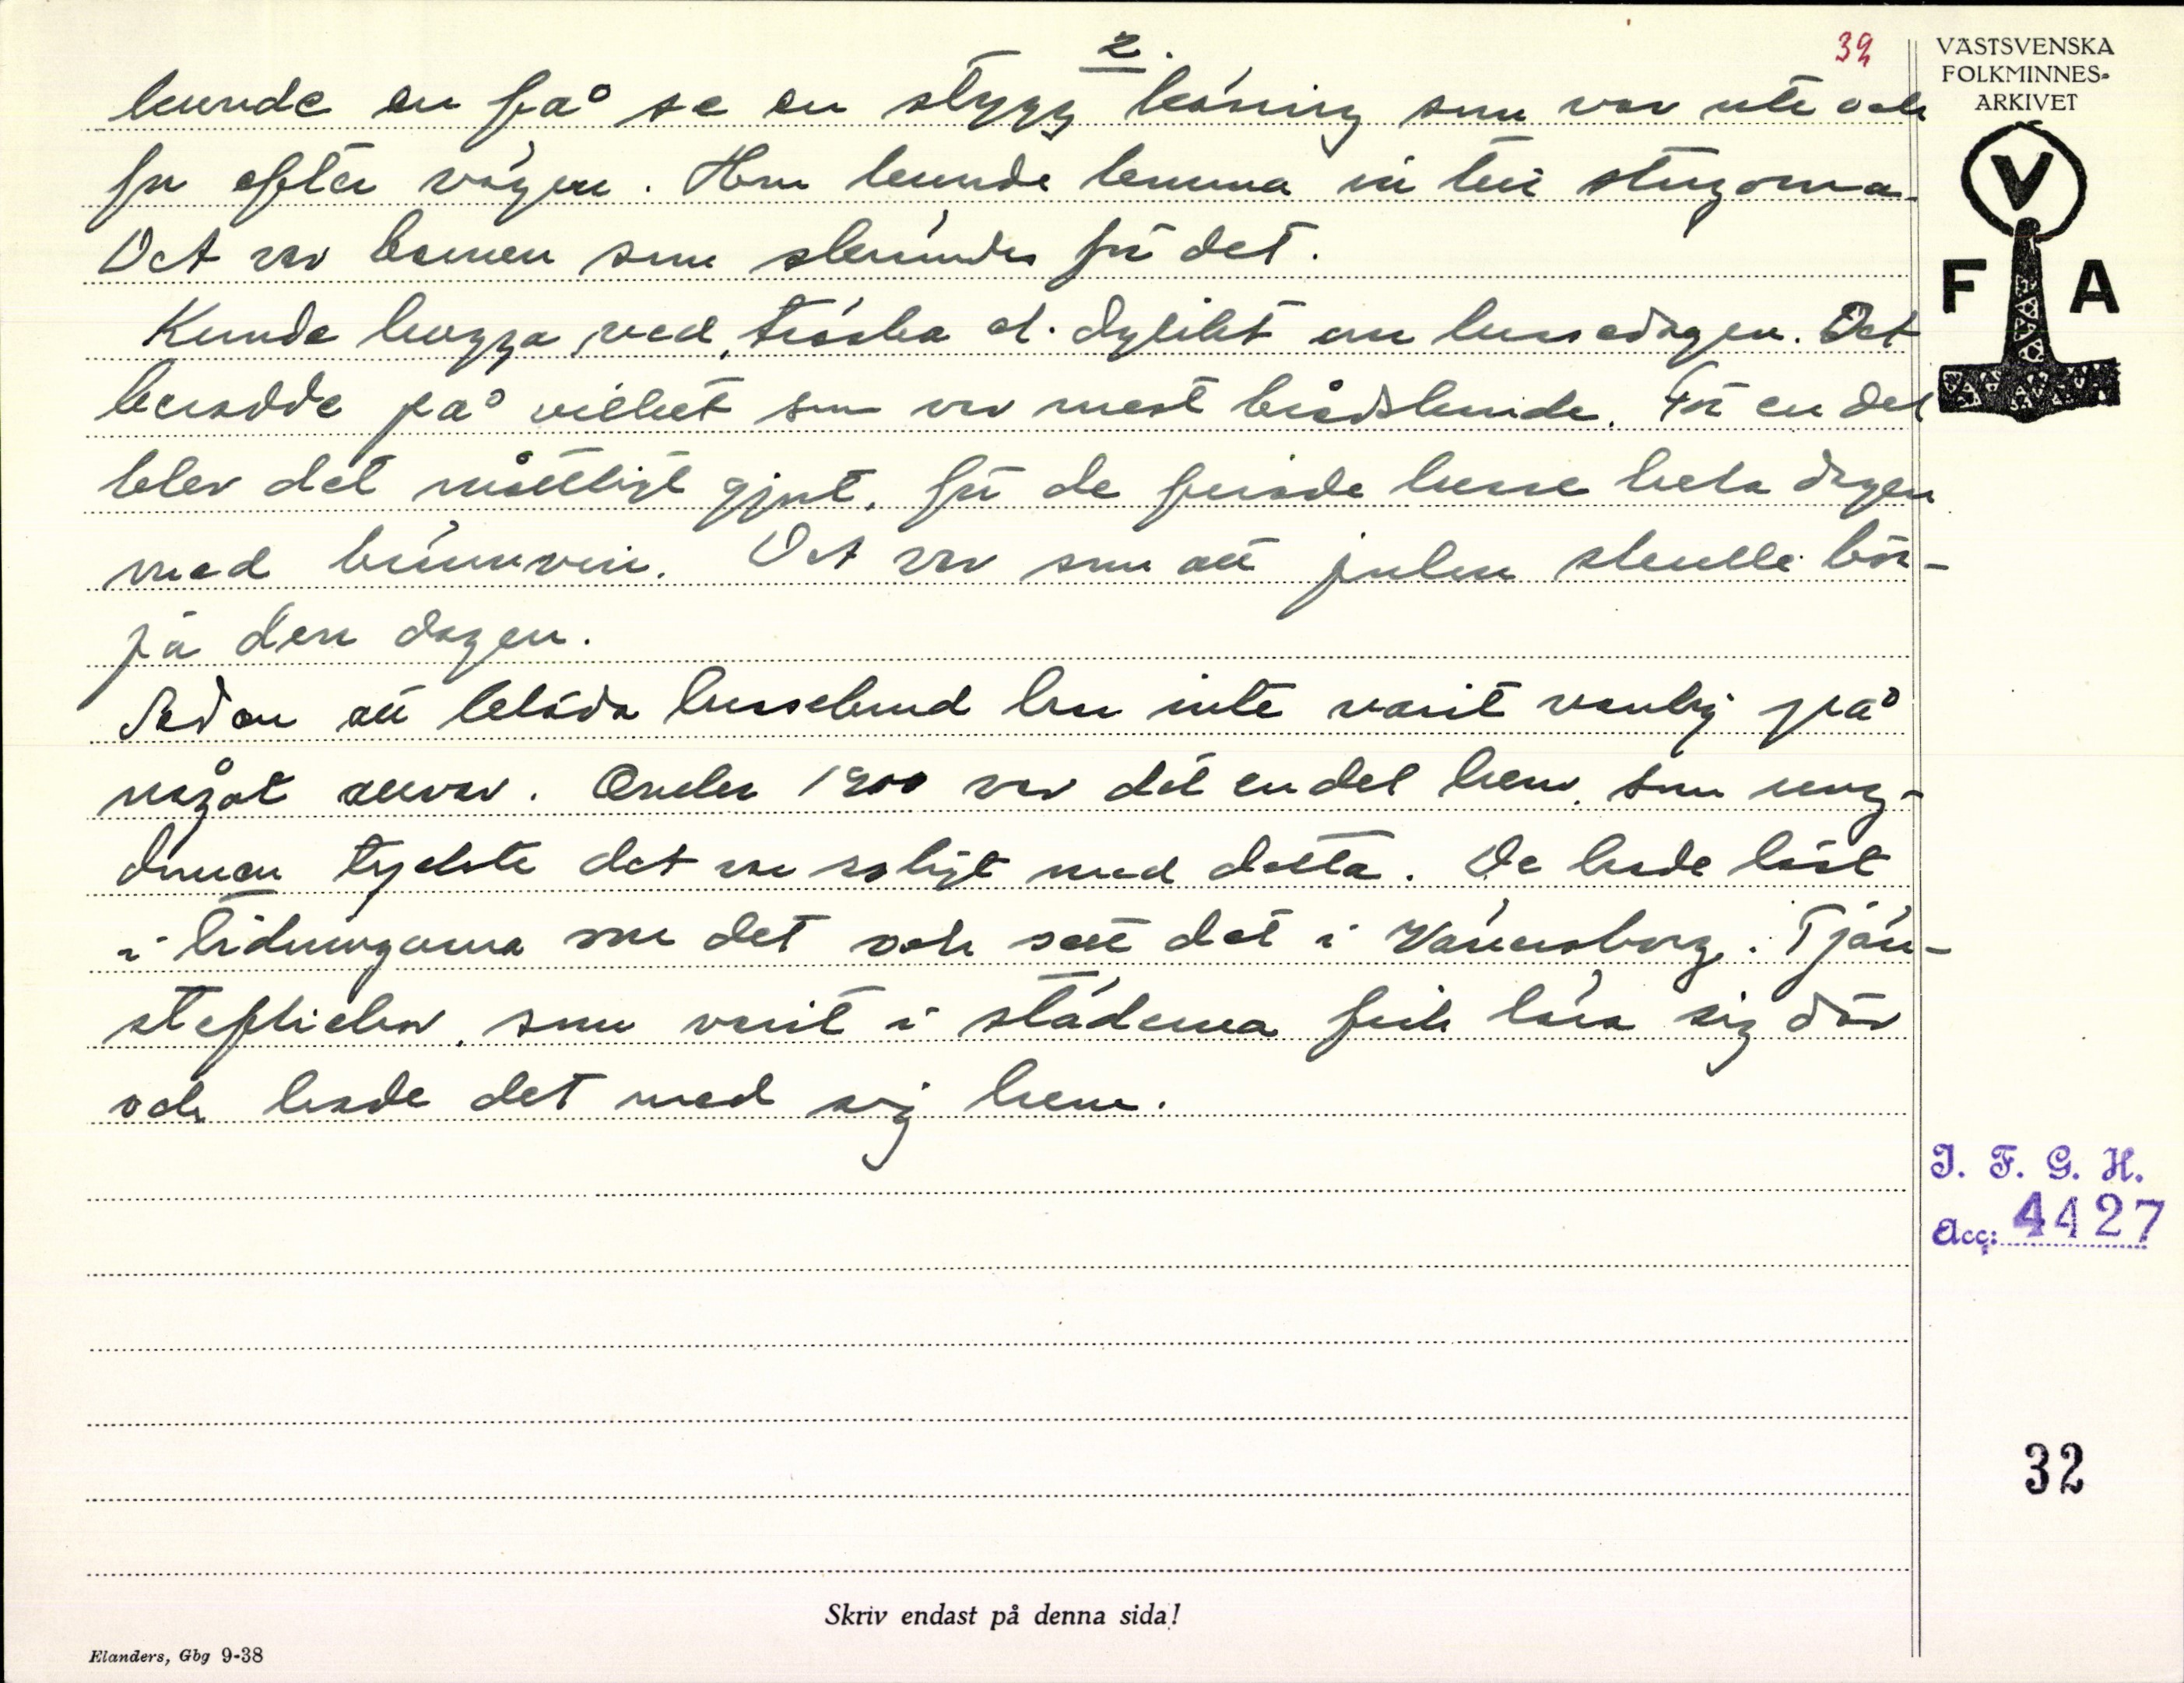 2.
39
VÄSTSVENSKA
FOLKMINNES-
ARKIVET
V
F A
kunde en få se en stygg käring som var ute och
for efter vägen. Hon kunde komma in till stugorna.
Det var barnen som skrämdes för det.
Kunde hugga ved, tröska el. dylikt om lussedagen. Det
berodde på vilket som var mest brådskande. För en del
blev det måttligt gjort, för de firade lusse hela dagen
med brännvin. Det var som att julen skulle bör-
ja den dagen.
Seden att kläda lussebrud har inte varit vanlig på
något annat. Under 1900 var det en del hem, som ung-
domen tyckte det var roligt med detta. De hade läst
i tidningarna om det och sett det i Vänersborg. Tjän-
steflickor, som varit i städerna fick lära sig där
och hade det med sig hem.
I. F. G. H.
Acc: 4427
32
Skriv endast på denna sida!
Elanders, Gbg 9-38